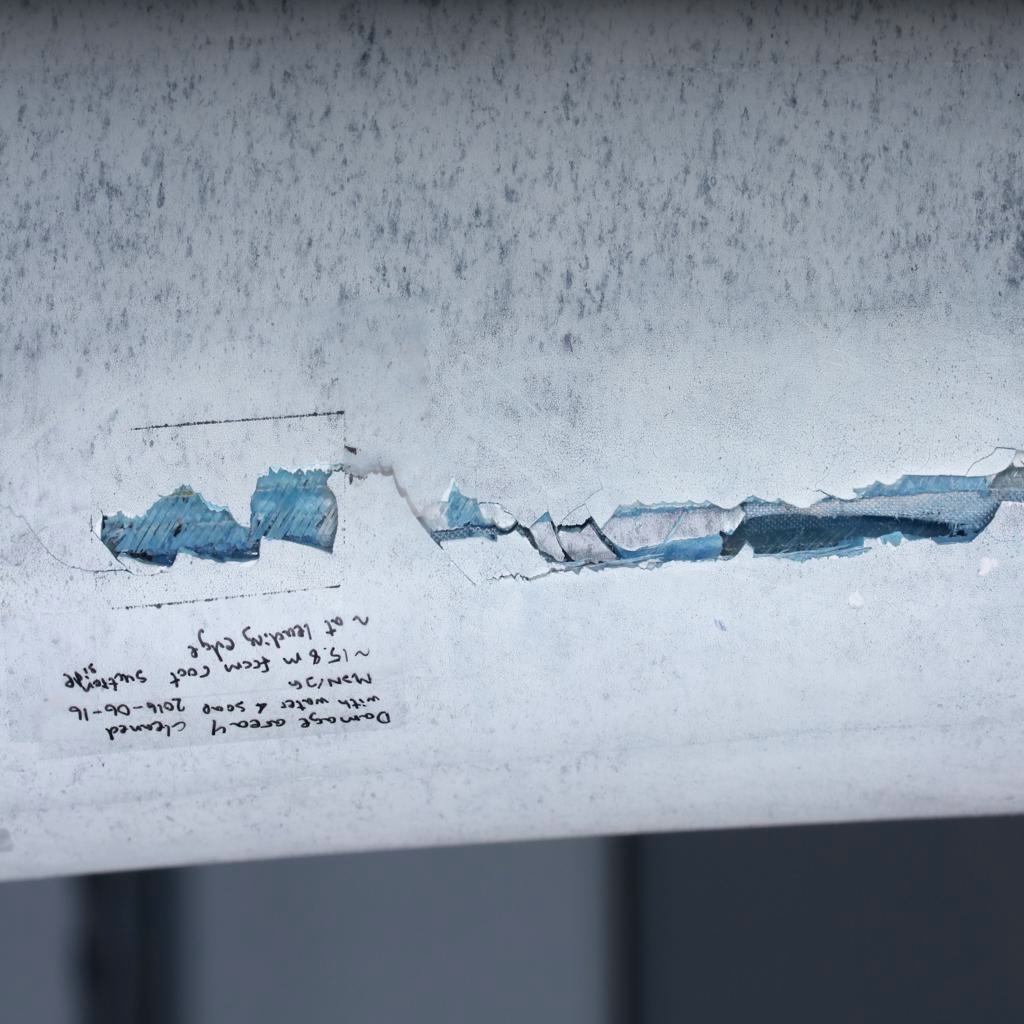 Damage area 4 cleaned
with water & soap 2016-06-16
~ 15.8 m from root suction side
~ at leading edge